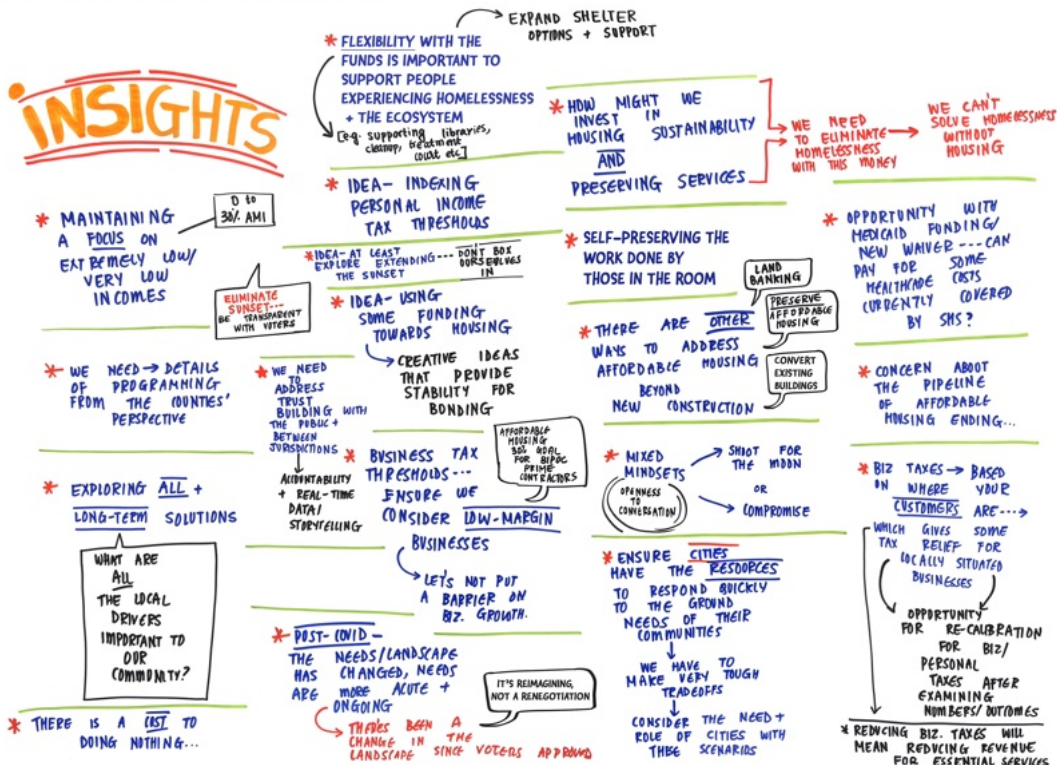 INSIGHTS
* MAINTAINING
A FOCUS ON
EXTREMELY LOW/
VERY LOW
INCOMES
0 to
30% AMI
* WE NEED → DETAILS
OF PROGRAMMING
FROM THE COUNTIES'
PERSPECTIVE
* EXPLORING ALL +
LONG-TERM SOLUTIONS
WHAT ARE
ALL
THE LOCAL
DRIVERS
IMPORTANT TO
OUR
COMMUNITY?
* THERE IS A COST TO
DOING NOTHING...
* FLEXIBILITY WITH THE
FUNDS IS IMPORTANT TO
SUPPORT PEOPLE
EXPERIENCING HOMELESSNESS
+ THE ECOSYSTEM
EXPAND SHELTER
OPTIONS + SUPPORT
[e.g. supporting libraries,
cleanup, treatment
court etc]
* IDEA- INDEXING
PERSONAL INCOME
TAX THRESHOLDS
* IDEA- AT LEAST
EXPLORE EXTENDING---
THE SUNSET
DON'T BOX
OURSELVES
IN
ELIMINATE
SUNSET...
BE TRANSPARENT
WITH VOTERS
* IDEA- USING
SOME FUNDING
TOWARDS HOUSING
CREATIVE IDEAS
THAT PROVIDE
STABILITY FOR
BONDING
* WE NEED
TO
ADDRESS
TRUST
BUILDING WITH
THE PUBLIC +
BETWEEN
JURISDICTIONS
ACCOUNTABILITY
+ REAL-TIME
DATA/
STORYTELLING
* BUSINESS TAX
THRESHOLDS---
ENSURE WE
CONSIDER LOW-MARGIN
BUSINESSES
AFFORDABLE
HOUSING
30% GOAL
FOR BIPOC
PRIME
CONTRACTORS
LET'S NOT PUT
A BARRIER ON
BIZ. GROWTH.
* POST-COVID-
THE NEEDS/LANDSCAPE
HAS CHANGED, NEEDS
ARE MORE ACUTE +
ONGOING
THERE'S BEEN A
CHANGE IN THE
LANDSCAPE SINCE VOTERS APPROVED
IT'S REIMAGINING,
NOT A RENEGOTIATION
* HOW MIGHT WE
INVEST IN
HOUSING SUSTAINABILITY
AND
PRESERVING SERVICES
WE NEED
TO ELIMINATE
HOMELESSNESS
WITH THIS MONEY
WE CAN'T
SOLVE HOMELESSNESS
WITHOUT
HOUSING
* SELF-PRESERVING THE
WORK DONE BY
THOSE IN THE ROOM
* THERE ARE OTHER
WAYS TO ADDRESS
AFFORDABLE HOUSING
BEYOND
NEW CONSTRUCTION
LAND
BANKING
PRESERVE
AFFORDABLE
HOUSING
CONVERT
EXISTING
BUILDINGS
* MIXED
MINDSETS
OPENNESS
TO
CONVERSATION
SHOOT FOR
THE MOON
OR
COMPROMISE
* ENSURE CITIES
HAVE THE RESOURCES
TO RESPOND QUICKLY
TO THE GROUND
NEEDS OF THEIR
COMMUNITIES
WE HAVE TO
MAKE VERY TOUGH
TRADEOFFS
CONSIDER THE NEED +
ROLE OF CITIES WITH
THESE SCENARIOS
* OPPORTUNITY WITH
MEDICAID FUNDING/
NEW WAIVER ---- CAN
PAY FOR SOME
HEALTHCARE COSTS
CURRENTLY COVERED
BY SHS?
* CONCERN ABOUT
THE PIPELINE
OF AFFORDABLE
HOUSING ENDING...
* BIZ TAXES → BASED
ON WHERE YOUR
CUSTOMERS ARE --->
WHICH GIVES SOME
TAX RELIEF FOR
LOCALLY SITUATED
BUSINESSES
OPPORTUNITY
FOR RE-CALIBRATION
FOR BIZ/
PERSONAL
TAXES AFTER
EXAMINING
NUMBERS/OUTCOMES
* REDUCING BIZ. TAXES WILL
MEAN REDUCING REVENUE
FOR ESSENTIAL SERVICES